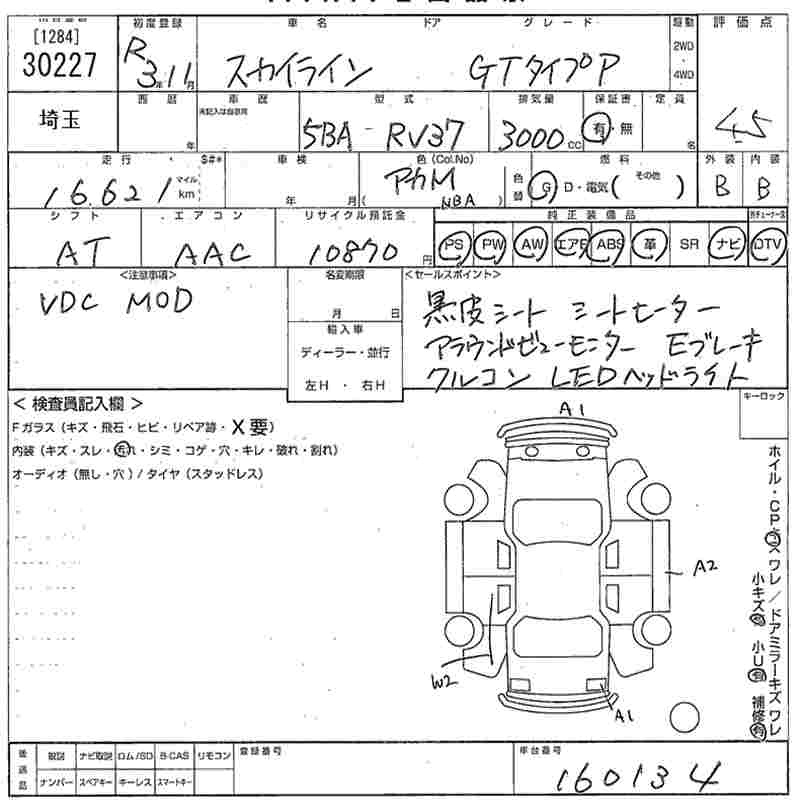 [1284]
30227
初度登録
R 3年11月
車名
ドア
グレード
スカイライン GTタイプP
駆動
2WD
・
4WD
評価点
4.5
埼玉
西暦
年
車歴
未記入は自家用
型式
5BA - RV37
排気量
3000cc
保証書
有・無
定員
名
走行
$#*
16.621
マイル
km
車検
年 月
色(Col.No)
アカM
( NBA )
色替
燃料
G D・電気( その他 )
外装
B
内装
B
シフト
AT
エアコン
AAC
リサイクル預託金
10870円
純正装備品
PS PW AW エアB ABS 革 SR ナビ DTV
<注意事項>
VDC MOD
名変期限
月 日
輸入車
ディーラー・並行
左H・右H
<セールスポイント>
黒皮シート シートヒーター
アラウンドビューモニター Eブレーキ
クルコン LEDヘッドライト
キーロック
< 検査員記入欄 >
Fガラス(キズ・飛石・ヒビ・リペア跡・X要)
内装(キズ・スレ・汚れ・シミ・コゲ・穴・キレ・破れ・割れ)
オーディオ(無し・穴)/タイヤ(スタッドレス)
A1
A2
W2
A1
ホイル・CPコスワレ/ドアミラーキズワレ
小キズ有 小U有 補修有
後送品
取説 ナビ取説 ロム/SD B-CAS リモコン
ナンバー スペアキー キーレス スマートキー
登録番号
車台番号
160134